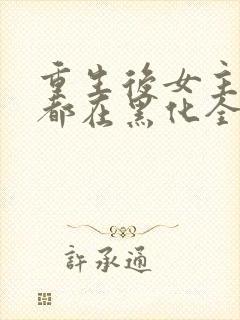 重生後女主
都在黑化全
許承通